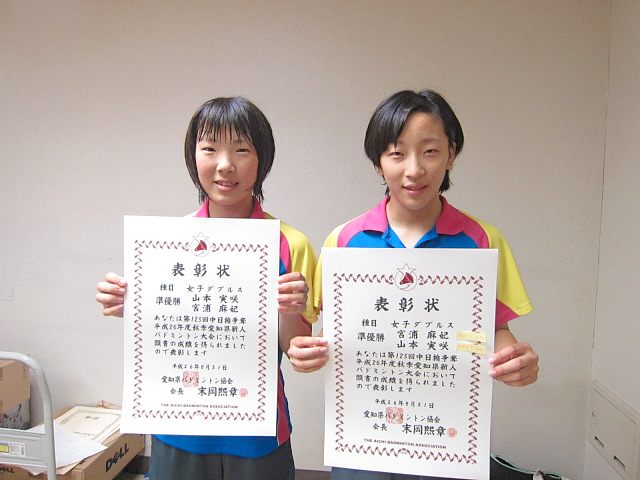 表彰状
種目 女子ダブルス
準優勝 山本 実咲
宮浦 麻妃
あなたは第125回中日輪争奪
平成26年度秋季愛知県新人
バドミントン大会において
頭書の成績を得られました
ので表彰します
平成26年8月31日
愛知県バドミントン協会
会長 末岡熙章
THE AICHI BADMINTON ASSOCIATION
表彰状
種目 女子ダブルス
準優勝 宮浦 麻妃
山本 実咲
あなたは第125回中日輪争奪
平成26年度秋季愛知県新人
バドミントン大会において
頭書の成績を得られました
ので表彰します
平成26年8月31日
愛知県バドミントン協会
会長 末岡熙章
THE AICHI BADMINTON ASSOCIATION
DELL